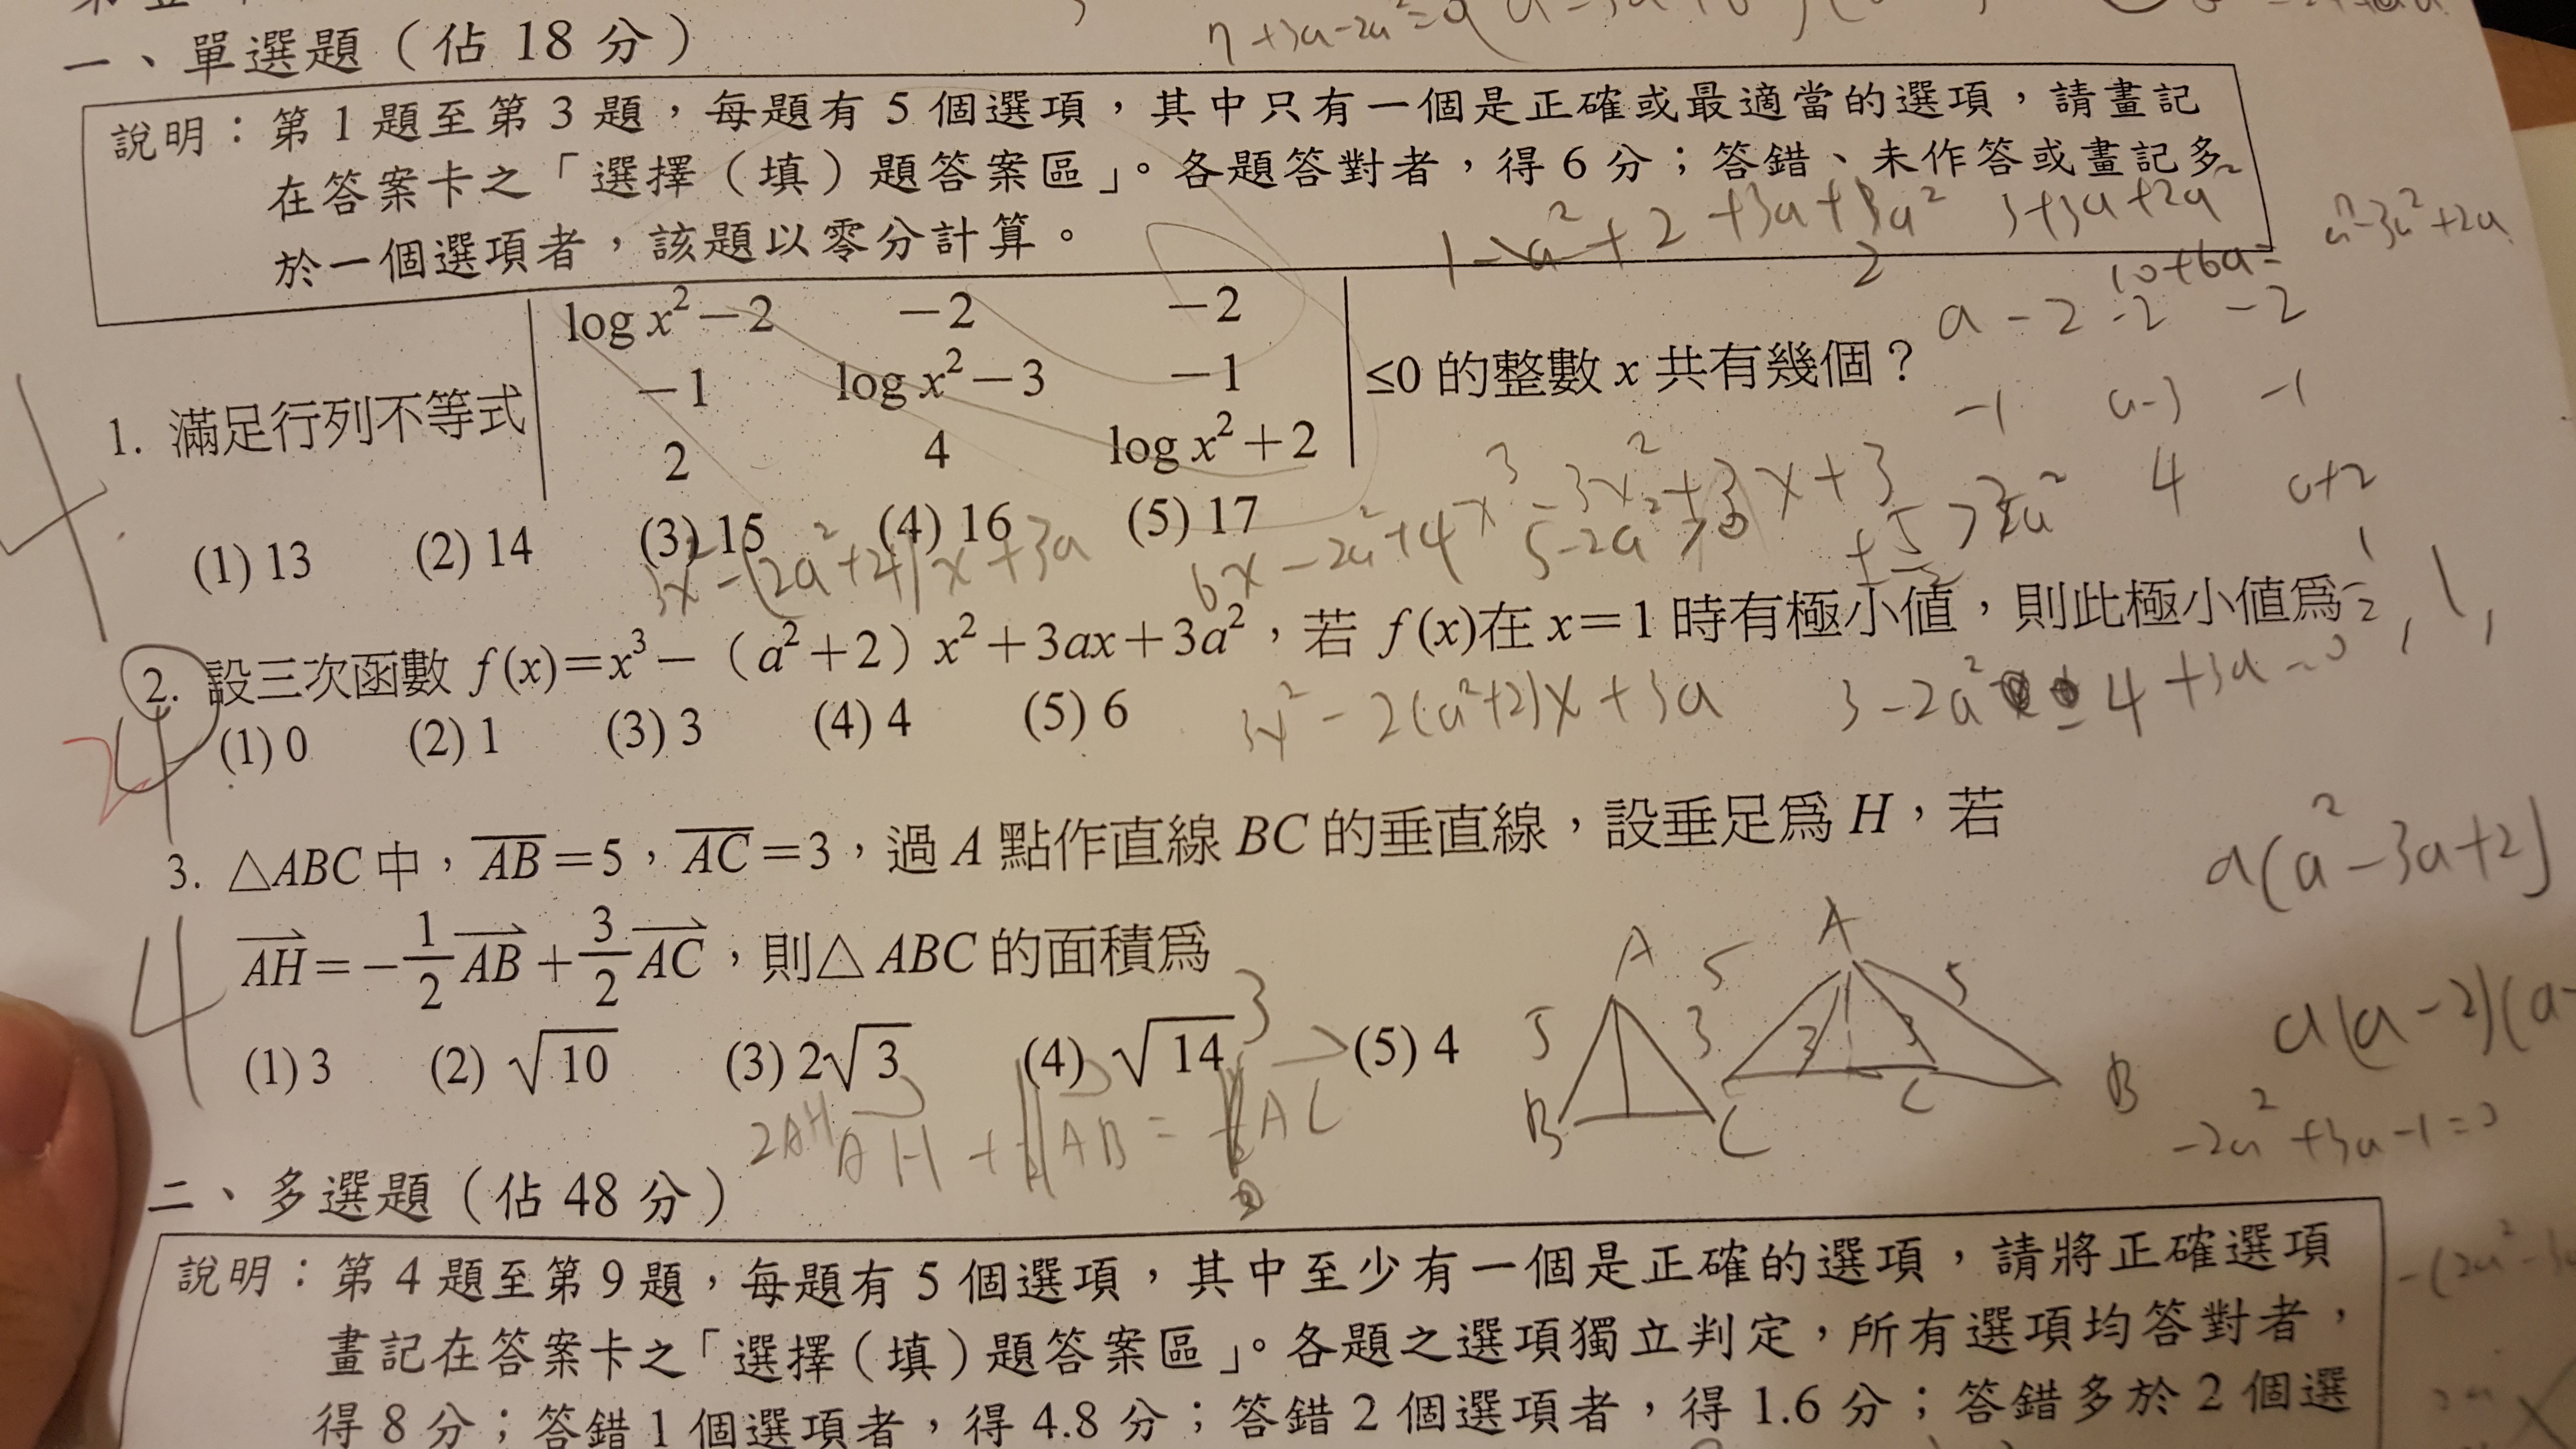 一、單選題（佔 18 分）
n+3a-2a²=
說明：第 1 題至第 3 題，每題有 5 個選項，其中只有一個是正確或最適當的選項，請畫記
在答案卡之「選擇（填）題答案區」。各題答對者，得 6 分；答錯、未作答或畫記多
於一個選項者，該題以零分計算。
3+3a+2a²
10+6a=
a³-3a²+2a
1. 滿足行列不等式 | log x²－2 －2 －2 |
| －1 log x²－3 －1 | ≤0 的整數 x 共有幾個？
| 2 4 log x²＋2 |
a-2 -2 -2
-1 a-3 -1
4 a+2
(1) 13 (2) 14 (3) 15 (4) 16 (5) 17
3x²-(2a²+4)x+3a
6x-2a²+4
5-2a²>0
2. 設三次函數 f(x)＝x³－（a²＋2）x²＋3ax＋3a²，若 f(x)在 x＝1 時有極小值，則此極小值爲
1/2, 1,
(1) 0 (2) 1 (3) 3 (4) 4 (5) 6
3x²-2(a²+2)x+3a
3-2a²-4+3a=0
3. △ABC 中，AB＝5，AC＝3，過 A 點作直線 BC 的垂直線，設垂足爲 H，若
AH＝－1/2 AB＋3/2 AC，則△ ABC 的面積爲
a(a²-3a+2)
a(a-2)(a-
(1) 3 (2) √10 (3) 2√3 (4) √14 (5) 4
A 5 3 B C
A 5 3 3 C B
2AH AH + AB = AC
-2a²+3a-1=0
二、多選題（佔 48 分）
說明：第 4 題至第 9 題，每題有 5 個選項，其中至少有一個是正確的選項，請將正確選項
畫記在答案卡之「選擇（填）題答案區」。各題之選項獨立判定，所有選項均答對者，
得 8 分；答錯 1 個選項者，得 4.8 分；答錯 2 個選項者，得 1.6 分；答錯多於 2 個選